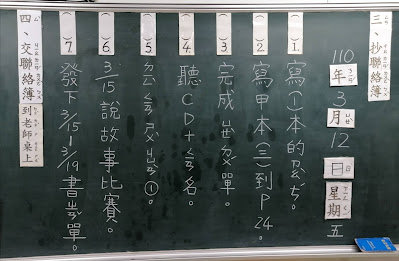 三、抄聯絡簿
110年3月12日星期五
( )1. 寫(一)本的
( )2. 寫甲本(三)到P24。
( )3. 完成 單。
( )4. 聽CD+ 名。
( )5. ①。
( )6. 3/15說故事比賽。
( )7. 發下3/15-3/19書 單。
四、交聯絡簿到老師桌上